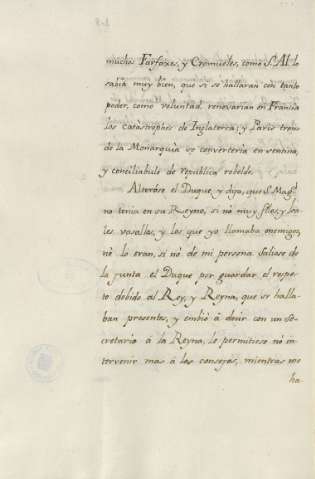 muchos Farfoxes, y Cromueles, como S. M. lo
sabia muy bien, que si se hallaran con tanto
poder, como voluntad renovarian en Francia
las catàstrophes de Inglaterra; y Paris trono
de la Monarquia se convertería en sentina,
y conciliabulo de republica rebelde.
Alteróse el Duque, y dijo, que S. Magd.
no tenia en su Reyno, si nò muy fles, y lea
les vasallos, y los que yo llamaba enemigos,
nò lo eran, si nò de mi persona. Salióse de
la junta el Duque por guardar el respe
to debido al Rey, y Reyna, que se halla
ban presentes, y embiò à decir con un Se
cretario à la Reyna, le permitiese nò in
tervenir mas à los consejos, mientras me
ha